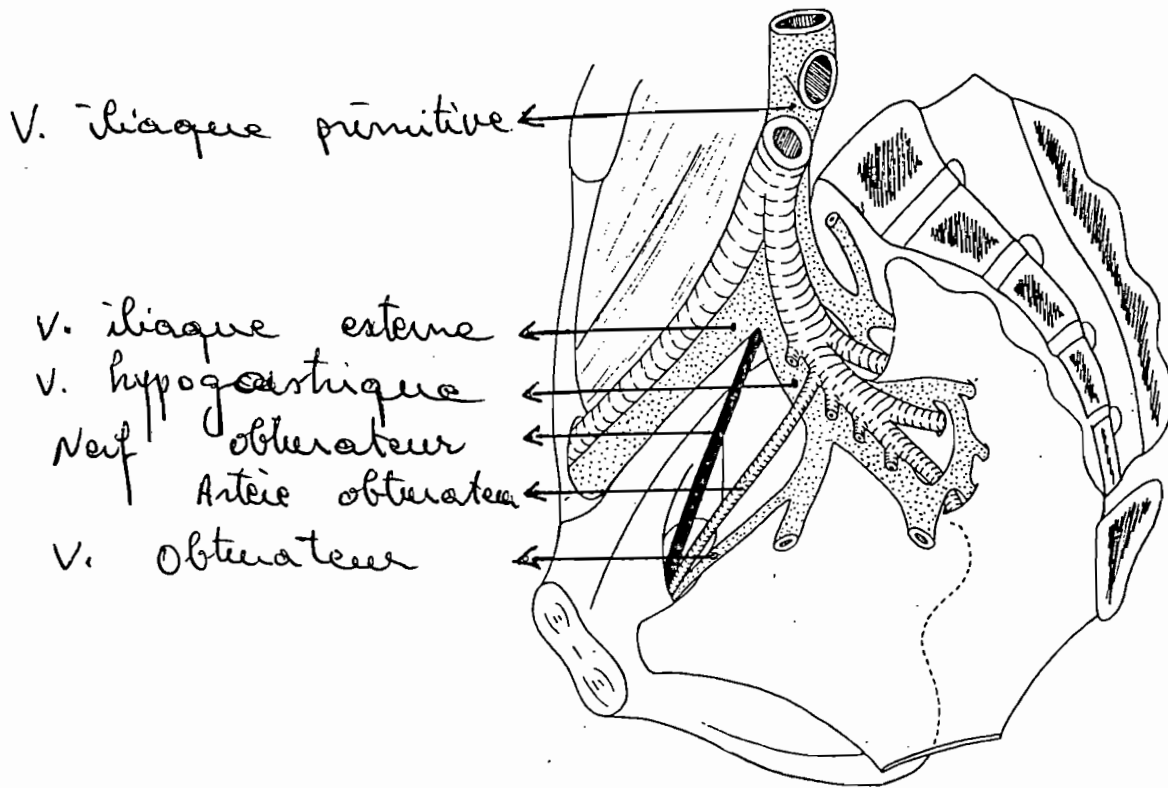 V. iliaque primitive
V. iliaque externe
V. hypogastrique
Nerf obturateur
Artère obturateur
V. Obturateur